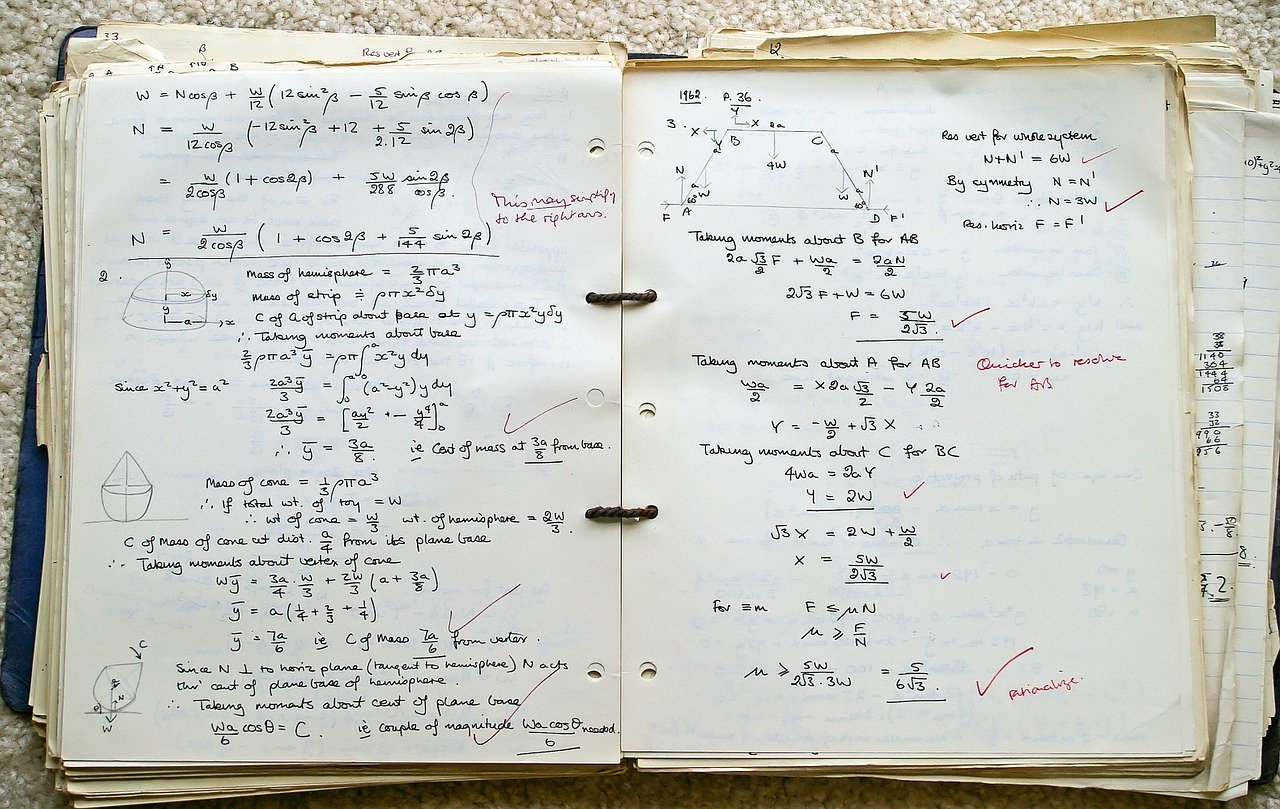 33
β
Res vert
A
B
W = Ncosβ + W/12 (12sin²β − 5/12 sinβ cosβ)
N = W/12cosβ (-12sin²β + 12 + 5/2.12 sin2β)
= W/2cosβ (1 + cos2β) + 5W/288 sin2β/cosβ.
This may simplify
to the right ans.
N = W/2cosβ (1 + cos2β + 5/144 sin2β)
2.
y
x
δy
y
a
x
Mass of hemisphere = 2/3 πa³
Mass of strip ≑ ρπx²δy
C of G of strip about base at y = ρπx²yδy
∴ Taking moments about base
2/3 ρπa³ȳ = ρπ∫₀ᵃ x²y dy
Since x²+y²=a² 2a³ȳ/3 = ∫₀ᵃ (a²-y²)y dy
2a³ȳ/3 = [ay²/2 + - y⁴/4]₀ᵃ
∴ ȳ = 3a/8 ie Cent of mass at 3a/8 from base.
Mass of cone = 1/3 ρπa³
∴ If total wt. of toy = W
∴ wt of cone = W/3 wt. of hemisphere = 2W/3.
C of Mass of cone at dist. a/4 from its plane base
∴ Taking moments about vertex of cone
Wȳ = 3a/4 . W/3 + 2W/3 (a + 3a/8)
ȳ = a(1/4 + 2/3 + 1/4)
ȳ = 7a/6 ie C of Mass 7a/6 from vertex.
C
N
θ
W
Since N ⊥ to horiz plane (tangent to hemisphere) N acts
thro' cent of plane base of hemisphere.
∴ Taking moments about cent of plane base
Wa/6 cosθ = C. ie couple of magnitude Wa cosθ/6 needed.
2.
1962. P. 36.
3.
Y
X
X
Y
B
2a
C
4W
a
a
a
a
N
N'
W
W
60°
60°
F
A
D
F'
Res vert for whole system
N+N' = 6W
By symmetry N = N'
∴ N = 3W
Res. horiz F = F'
Taking moments about B for AB
2a √3/2 F + Wa/2 = 2aN/2
2√3 F + W = 6W
F = 5W/2√3.
Taking moments about A for AB
Quicker to resolve
for AB
Wa/2 = X 2a √3/2 − Y 2a/2
Y = -W/2 + √3 X
Taking moments about C for BC
4Wa = 2aY
Y = 2W
√3 X = 2W + W/2
X = 5W/2√3
For ≡m F ≤ μN
μ ≥ F/N
μ ≥ 5W/2√3.3W = 5/6√3.
rationalize.
38
38
1140
304
1444
64
1508
33
32
990
66